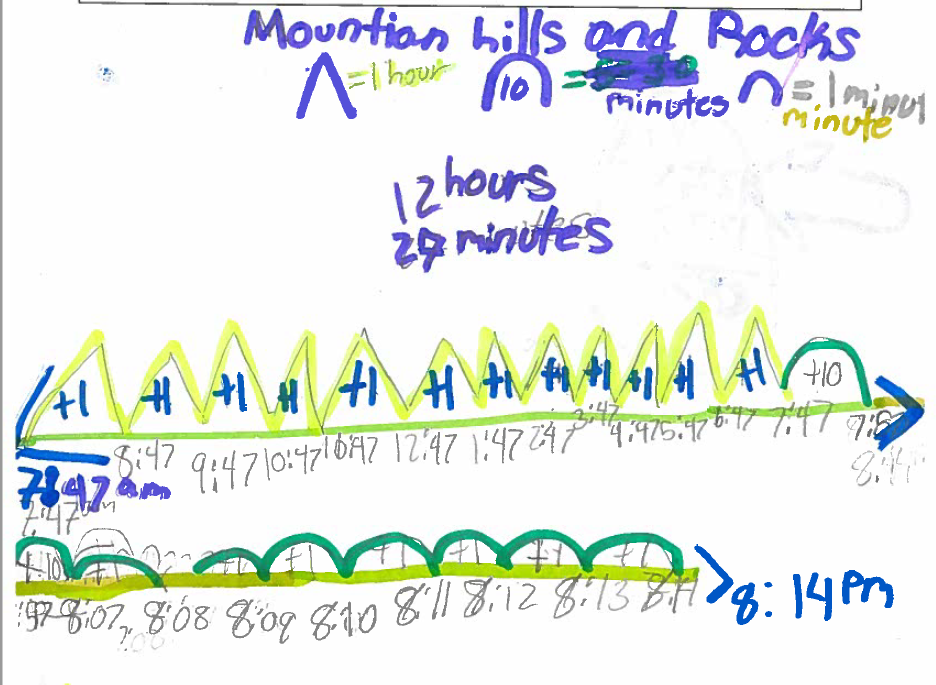 Mountian hills and Rocks
= 1 hour 10 = minutes = 1 minut
minute
12 hours
27 minutes
+1 +1 +1 +1 +1 +1 +1 +1 +1 +1 +1 +1 +10
8:47 9:47 10:47 12:47 1:47 2:47 3:47 4:47 5:47 6:47 7:47
47 am
7:47 am
+10 +1 +1 +1 +1 +1 +1
8:07 8:08 8:09 8:10 8:11 8:12 8:13 8:14 8:14 pm